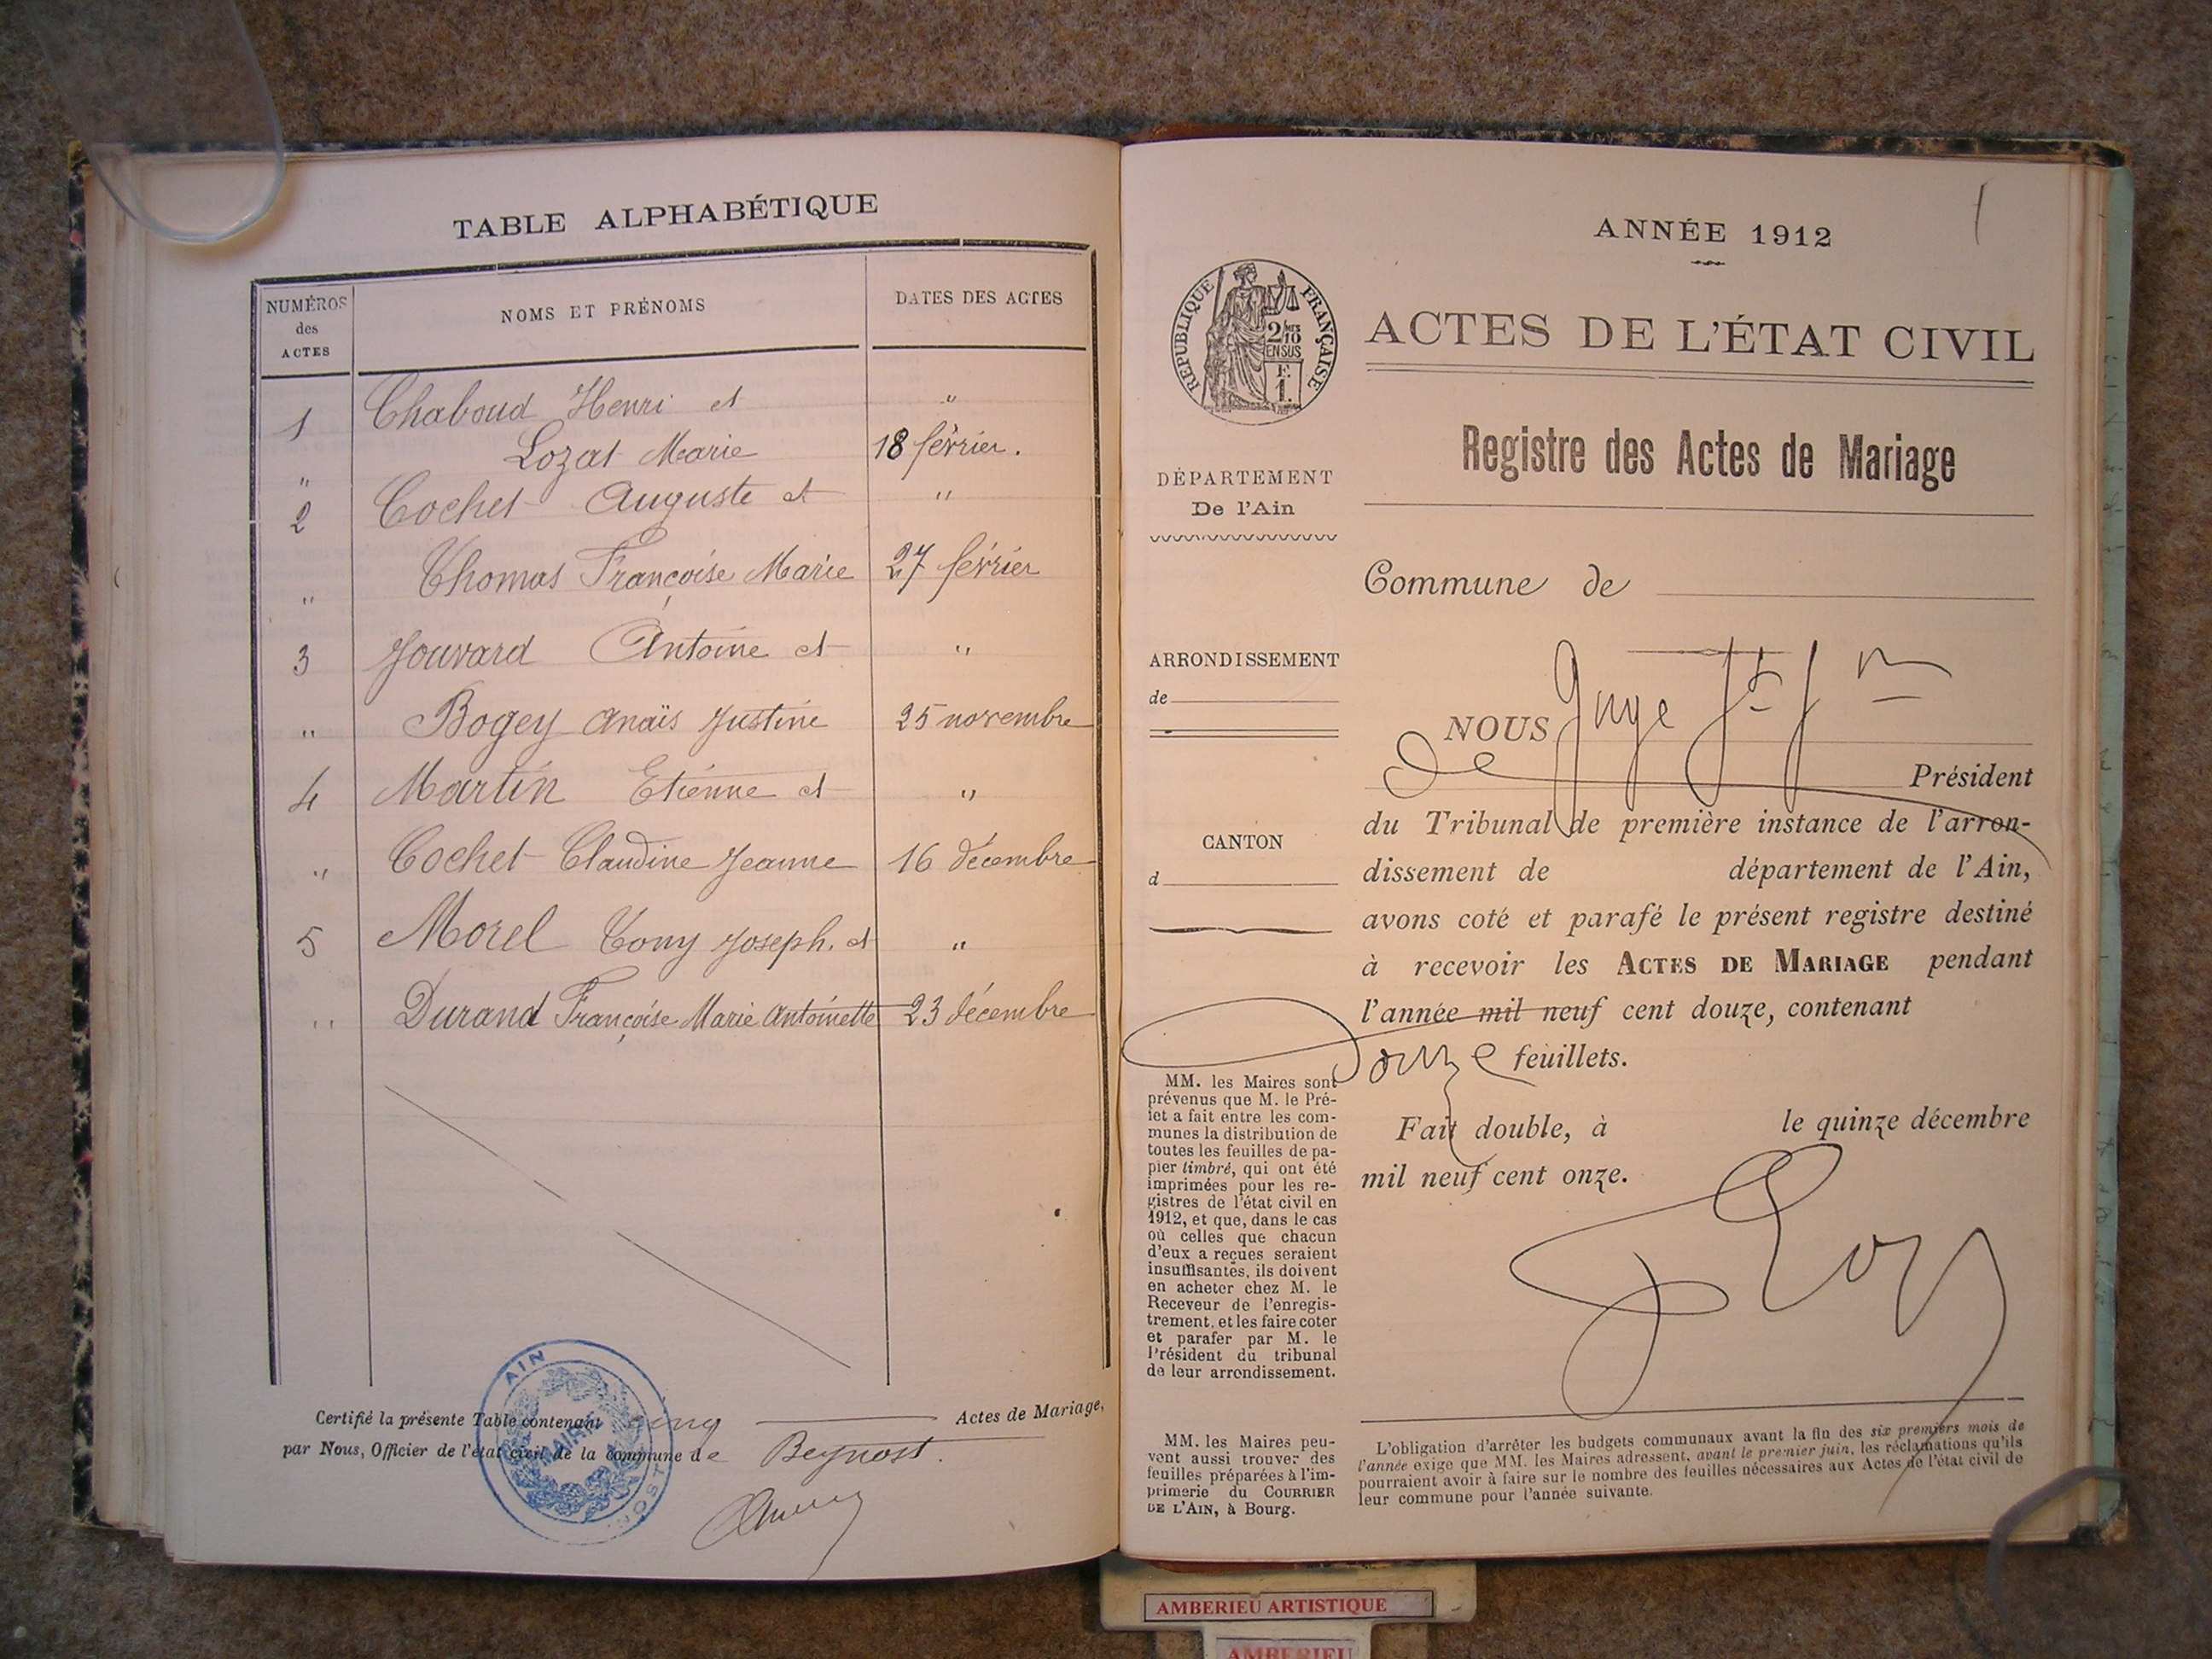 TABLE ALPHABÉTIQUE
NUMÉROS des ACTES
NOMS ET PRÉNOMS
DATES DES ACTES
1 Chaboud Henri et "
" Lozat Marie 18 février.
2 Cochet Auguste et "
" Thomas Françoise Marie 27 février
3 Jouvard Antoine et "
" Bogey Anaïs Justine 25 novembre
4 Martin Etienne et "
" Cochet Claudine Jeanne 16 décembre
5 Morel Tony Joseph. et "
" Durand Françoise Marie Antoinette 23 décembre
Certifié la présente Table contenant cinq Actes de Mariage,
par Nous, Officier de l'état civil de la commune de Beynost.
AIN
MAIRIE
1
ANNÉE 1912
RÉPUBLIQUE FRANÇAISE
2/10
EN SUS
F.
1.
ACTES DE L'ÉTAT CIVIL
Registre des Actes de Mariage
DÉPARTEMENT
De l'Ain
Commune de
ARRONDISSEMENT
de
CANTON
d
NOUS Juge
de Président
du Tribunal de première instance de l'arron-
dissement de département de l'Ain,
avons coté et parafé le présent registre destiné
à recevoir les ACTES DE MARIAGE pendant
l'année mil neuf cent douze, contenant
douze feuillets.
Fait double, à le quinze décembre
mil neuf cent onze.
MM. les Maires sont
prévenus que M. le Pré-
fet a fait entre les com-
munes la distribution de
toutes les feuilles de pa-
pier timbré, qui ont été
imprimées pour les re-
gistres de l'état civil en
1912, et que, dans le cas
où celles que chacun
d'eux a reçues seraient
insuffisantes, ils doivent
en acheter chez M. le
Receveur de l'enregis-
trement, et les faire coter
et parafer par M. le
Président du tribunal
de leur arrondissement.
MM. les Maires peu-
vent aussi trouver des
feuilles préparées à l'im-
primerie du COURRIER
DE L'AIN, à Bourg.
L'obligation d'arrêter les budgets communaux avant la fin des six premiers mois de
l'année exige que MM. les Maires adressent, avant le premier juin, les réclamations qu'ils
pourraient avoir à faire sur le nombre des feuilles nécessaires aux Actes de l'état civil de
leur commune pour l'année suivante.
AMBERIEU ARTISTIQUE
AMBERIEU